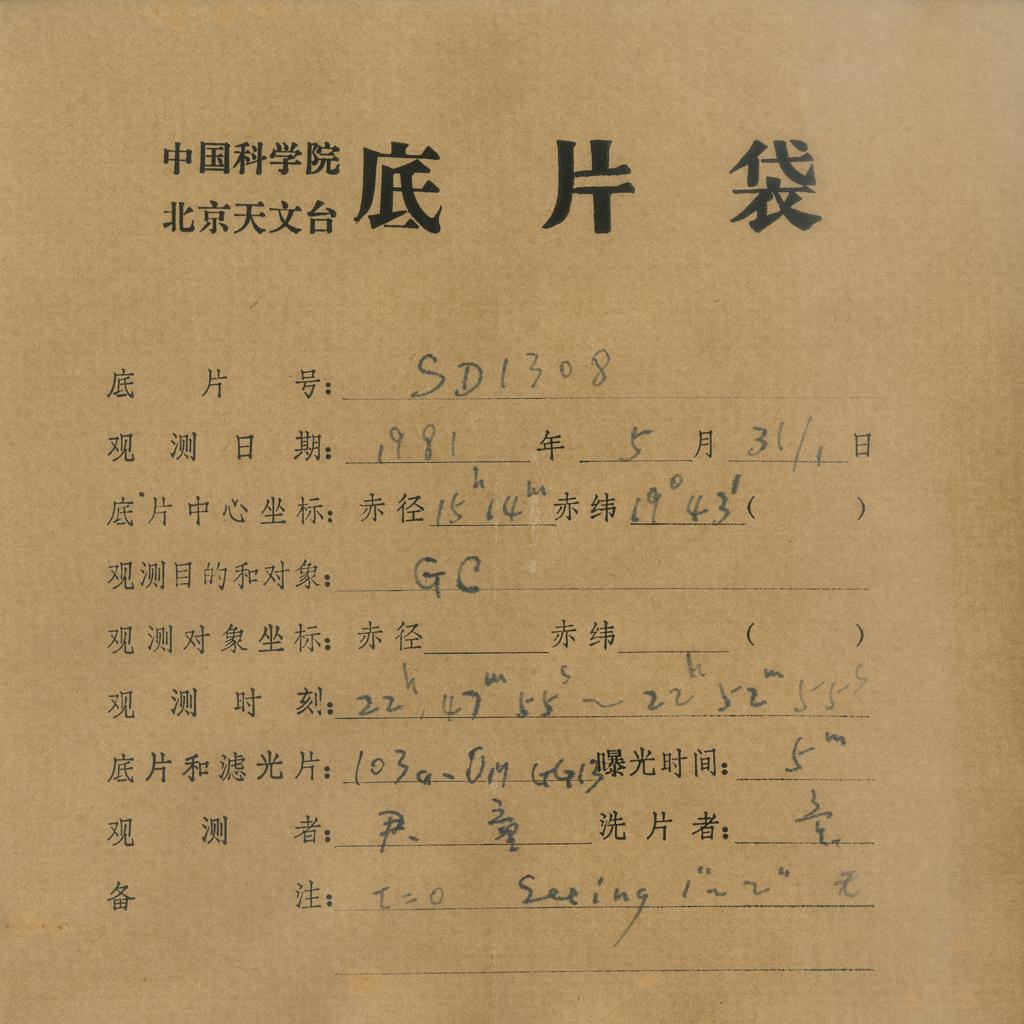 中国科学院
北京天文台
底片袋
底片号: SD1308
观测日期: 1981年5月31/1日
底片中心坐标: 赤径15h14m赤纬19°43′( )
观测目的和对象: GC
观测对象坐标: 赤径 赤纬 ( )
观测时刻: 22h47m55s~22h52m55s
底片和滤光片: 103a-O GG13 曝光时间: 5m
观测者: 尹. 童 洗片者: 童.
备注: t=0 Seeing 1"~2"